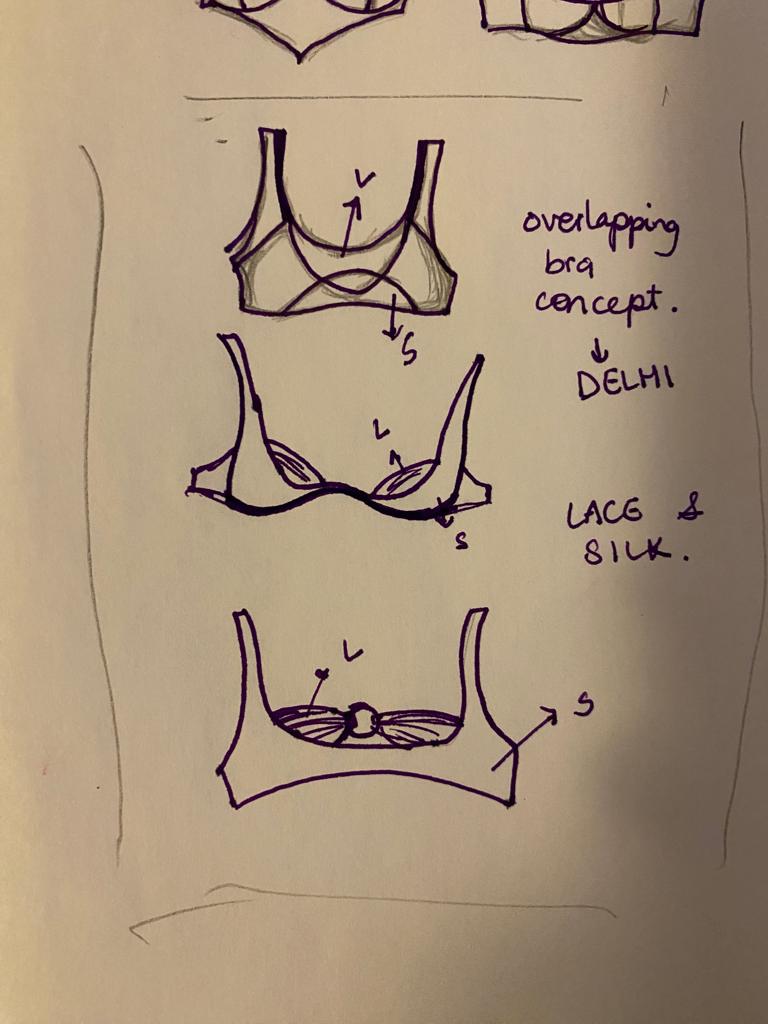 L
overlapping
bra
concept.
S
DELHI
L
LACE &
SILK.
S
L
S